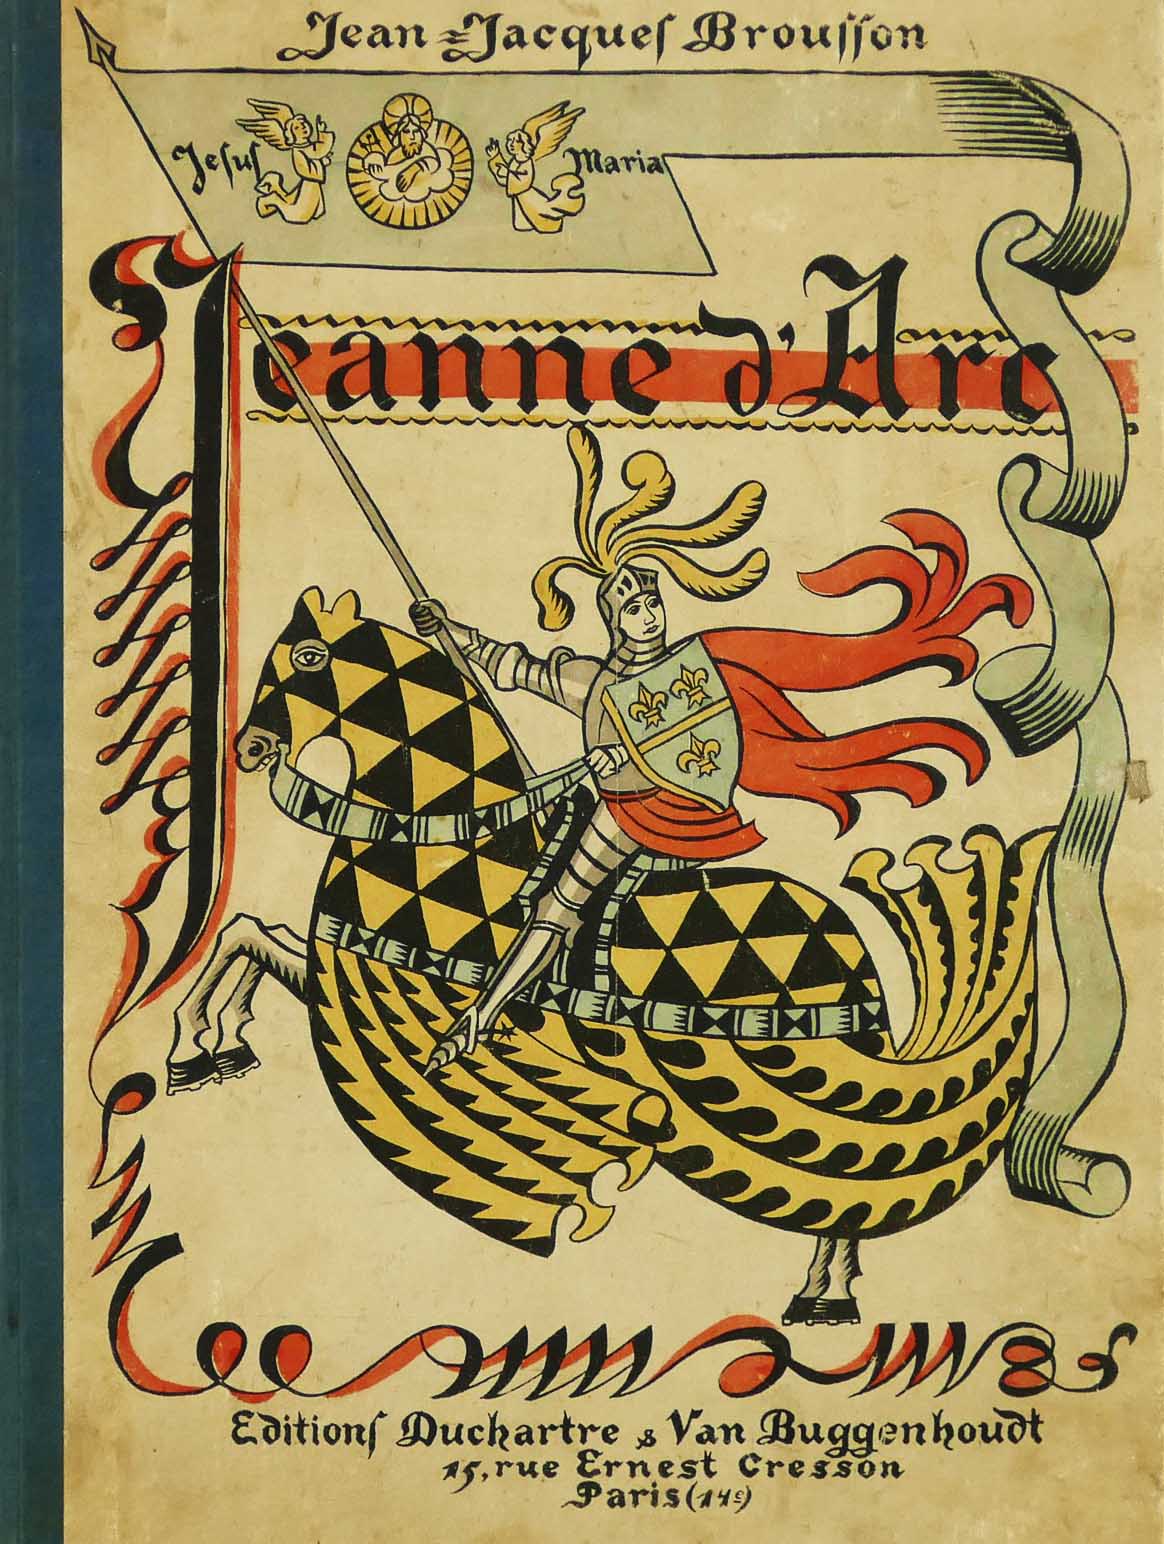 Jean-Jacques Brousson
Jesus Maria
Jeanne d'Arc
Editions Duchartre & Van Buggenhoudt
15, rue Ernest Cresson
Paris (14e)